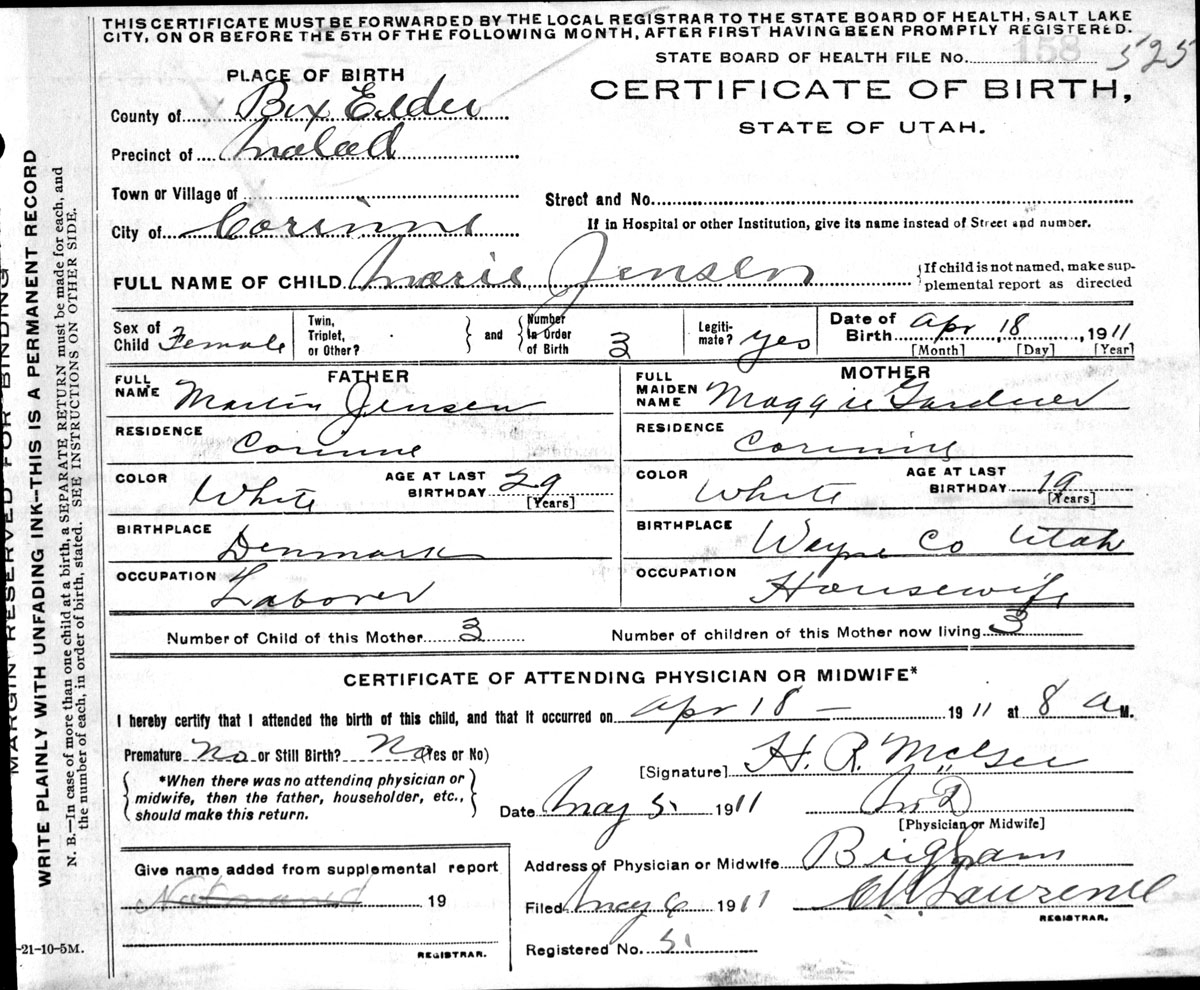 THIS CERTIFICATE MUST BE FORWARDED BY THE LOCAL REGISTRAR TO THE STATE BOARD OF HEALTH, SALT LAKE
CITY, ON OR BEFORE THE 5TH OF THE FOLLOWING MONTH, AFTER FIRST HAVING BEEN PROMPTLY REGISTERED.
STATE BOARD OF HEALTH FILE No. 158 525
CERTIFICATE OF BIRTH,
STATE OF UTAH.
PLACE OF BIRTH
County of Box Elder
Precinct of Malad
Town or Village of
Street and No.
City of Corinne
If in Hospital or other Institution, give its name instead of Street and number.
FULL NAME OF CHILD Marie Jensen
If child is not named, make sup-
plemental report as directed
Sex of Child Female
Twin, Triplet, or Other?
and
Number in Order of Birth 3
Legiti-mate? yes
Date of Birth Apr 18, 1911
[Month] [Day] [Year]
FATHER
FULL NAME Martin Jensen
RESIDENCE Corinne
COLOR White
AGE AT LAST BIRTHDAY 29
[Years]
BIRTHPLACE Denmark
OCCUPATION Laborer
MOTHER
FULL MAIDEN NAME Maggie Gardner
RESIDENCE Corinne
COLOR White
AGE AT LAST BIRTHDAY 19
[Years]
BIRTHPLACE Wayne Co Utah
OCCUPATION Housewife
Number of Child of this Mother 3
Number of children of this Mother now living 3
CERTIFICATE OF ATTENDING PHYSICIAN OR MIDWIFE*
I hereby certify that I attended the birth of this child, and that it occurred on Apr 18 – 1911 at 8 a M.
Premature No or Still Birth? No (Yes or No)
*When there was no attending physician or
midwife, then the father, householder, etc.,
should make this return.
[Signature] H. R. McGee
Date May 5, 1911
M D
[Physician or Midwife]
Give name added from supplemental report
Not named 19
REGISTRAR.
Address of Physician or Midwife Brigham
Filed May 6 1911
C W Lawrence
REGISTRAR.
Registered No. 51
-21-10-5M.
MARGIN RESERVED FOR BINDING
WRITE PLAINLY WITH UNFADING INK—THIS IS A PERMANENT RECORD
N. B.—In case of more than one child at a birth, a SEPARATE RETURN must be made for each, and
the number of each, in order of birth, stated. SEE INSTRUCTIONS ON OTHER SIDE.